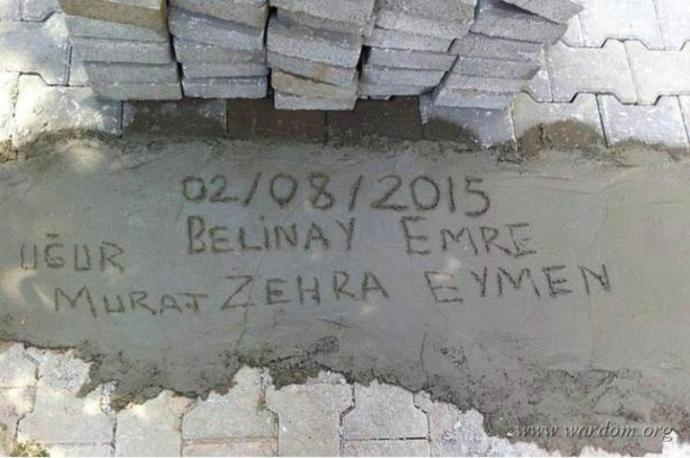 02/08/2015
BELİNAY EMRE
UĞUR
MURAT ZEHRA EYMEN
www.wardom.org